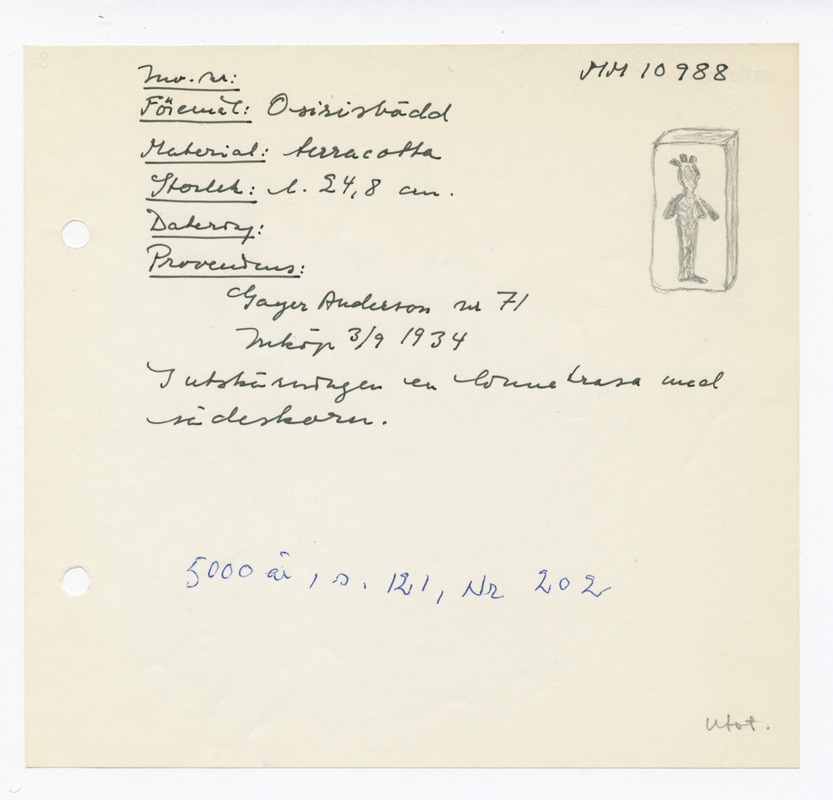 Inv. nr: MM 10988
Föremål: Osirisbädd
Material: terracotta
Storlek: l. 24,8 cm.
Datering:
Proveniens:
Gayer Anderson nr 71
Inköp 3/9 1934
I utskärningen en linnetrasa med
sädeskorn.
5000 år, s. 121, Nr 202
Utst.